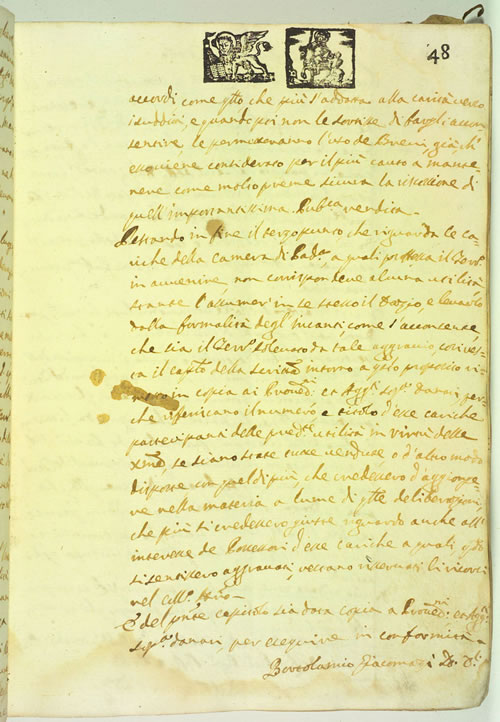 48
accordi come gtto che più s'addatta alla carità verso
i sudditi, e quando poi non le sortisse di fargli accon-
sentire le permetteranno l'uso de Brevi, già ch'
esso viene considerato per il più cauto a mante-
nere come molto preme sicura la riscossione di
quell'importantissima Pub.ca rendita.
Restando in fine il terzo punto, che riguarda le ca-
riche della Camera di Pad.a, a quali protesta il
in avvenire, non corrispondere alcuna utilità
stante l'assumer in se stesso il Dazio, e levarlo
dalla formalità degl'incanti come s'acconsente,
che sia il sollevato da tale aggravio, così res-
ta il della intorno a gsto proposito ri-
in copia ai Proved.ri et Agg.ti sop.a danari per-
che riferiscano il numero, e titolo d'esse cariche
partecipanti delle pred.te utilità in virtù delle
se siano state esse vendute, o d'altro modo
disposte con quel di più, che credessero d'aggionge-
re nella materia a lume di gtte deliberazioni,
che più si credessero giuste riguardo anche all'
interesse de Possessori d'esse cariche a quali, qdo
si sentissero aggravati, restano riservati li ricorsi
nel
E del pnte capitolo sia data copia a Proved.ri et Agg.ti
sop.a danari, per esequire in conformità.
Bortolamio Giacomazzi